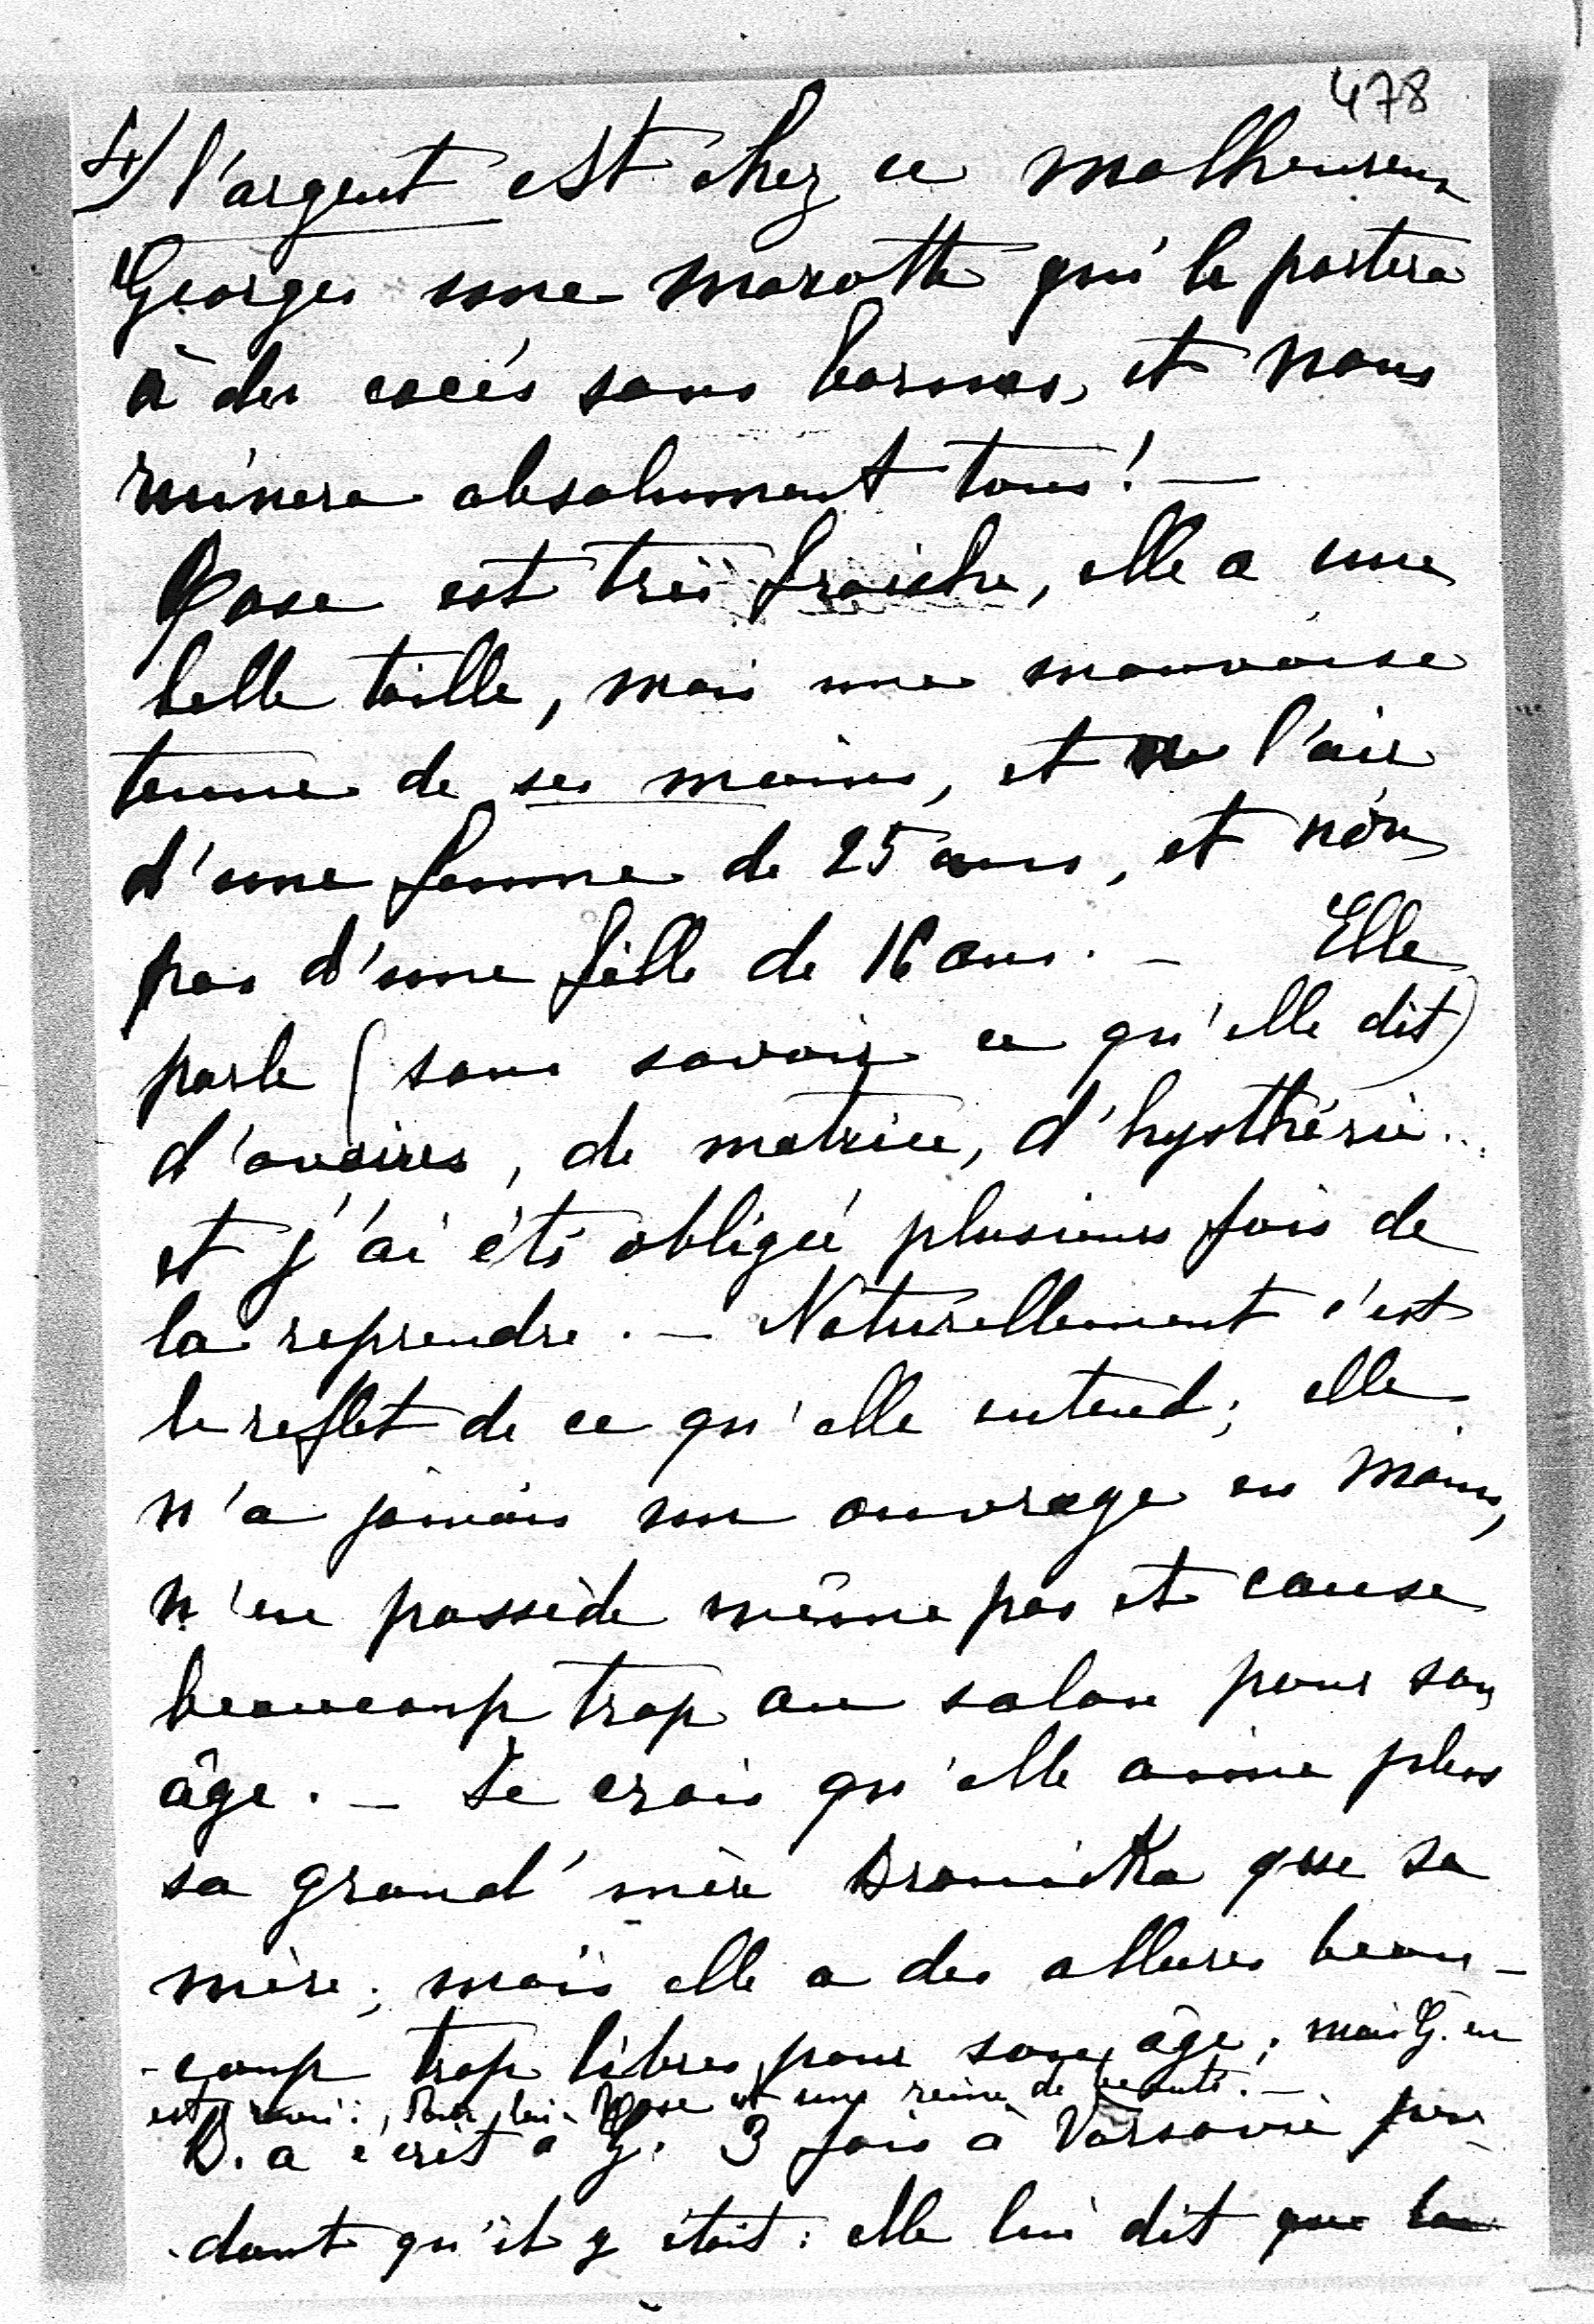 478
4) l'argent est chez ce malheureux
Georges une marotte qui le portera
à des excès sans bornes, et nous
ruinera absolument tous! —
Rose est très fraîche, elle a une
belle taille, mais une mauvaise
tenue de ses mains, et l'air
d'une femme de 25 ans, et non
pas d'une fille de 16 ans. — Elle
parle (sans savoir ce qu'elle dit)
d'ovaires, de matrice, d'hysthérie...
et j'ai été obligée plusieurs fois de
la reprendre. — Naturellement c'est
le reflet de ce qu'elle entend; elle
n'a jamais un ouvrage en mains,
n'en possède même pas et cause
beaucoup trop au salon pour son
âge. — Je crois qu'elle aime plus
sa grand'mère que sa
mère; mais elle a des allures beau-
-coup trop libres pour son âge; mais G. en
est ravi: Pour lui Rose est une reine de beauté. —
D. a écrit à G. 3 fois à Varsovie pen-
-dant qu'il y était: elle lui dit que la